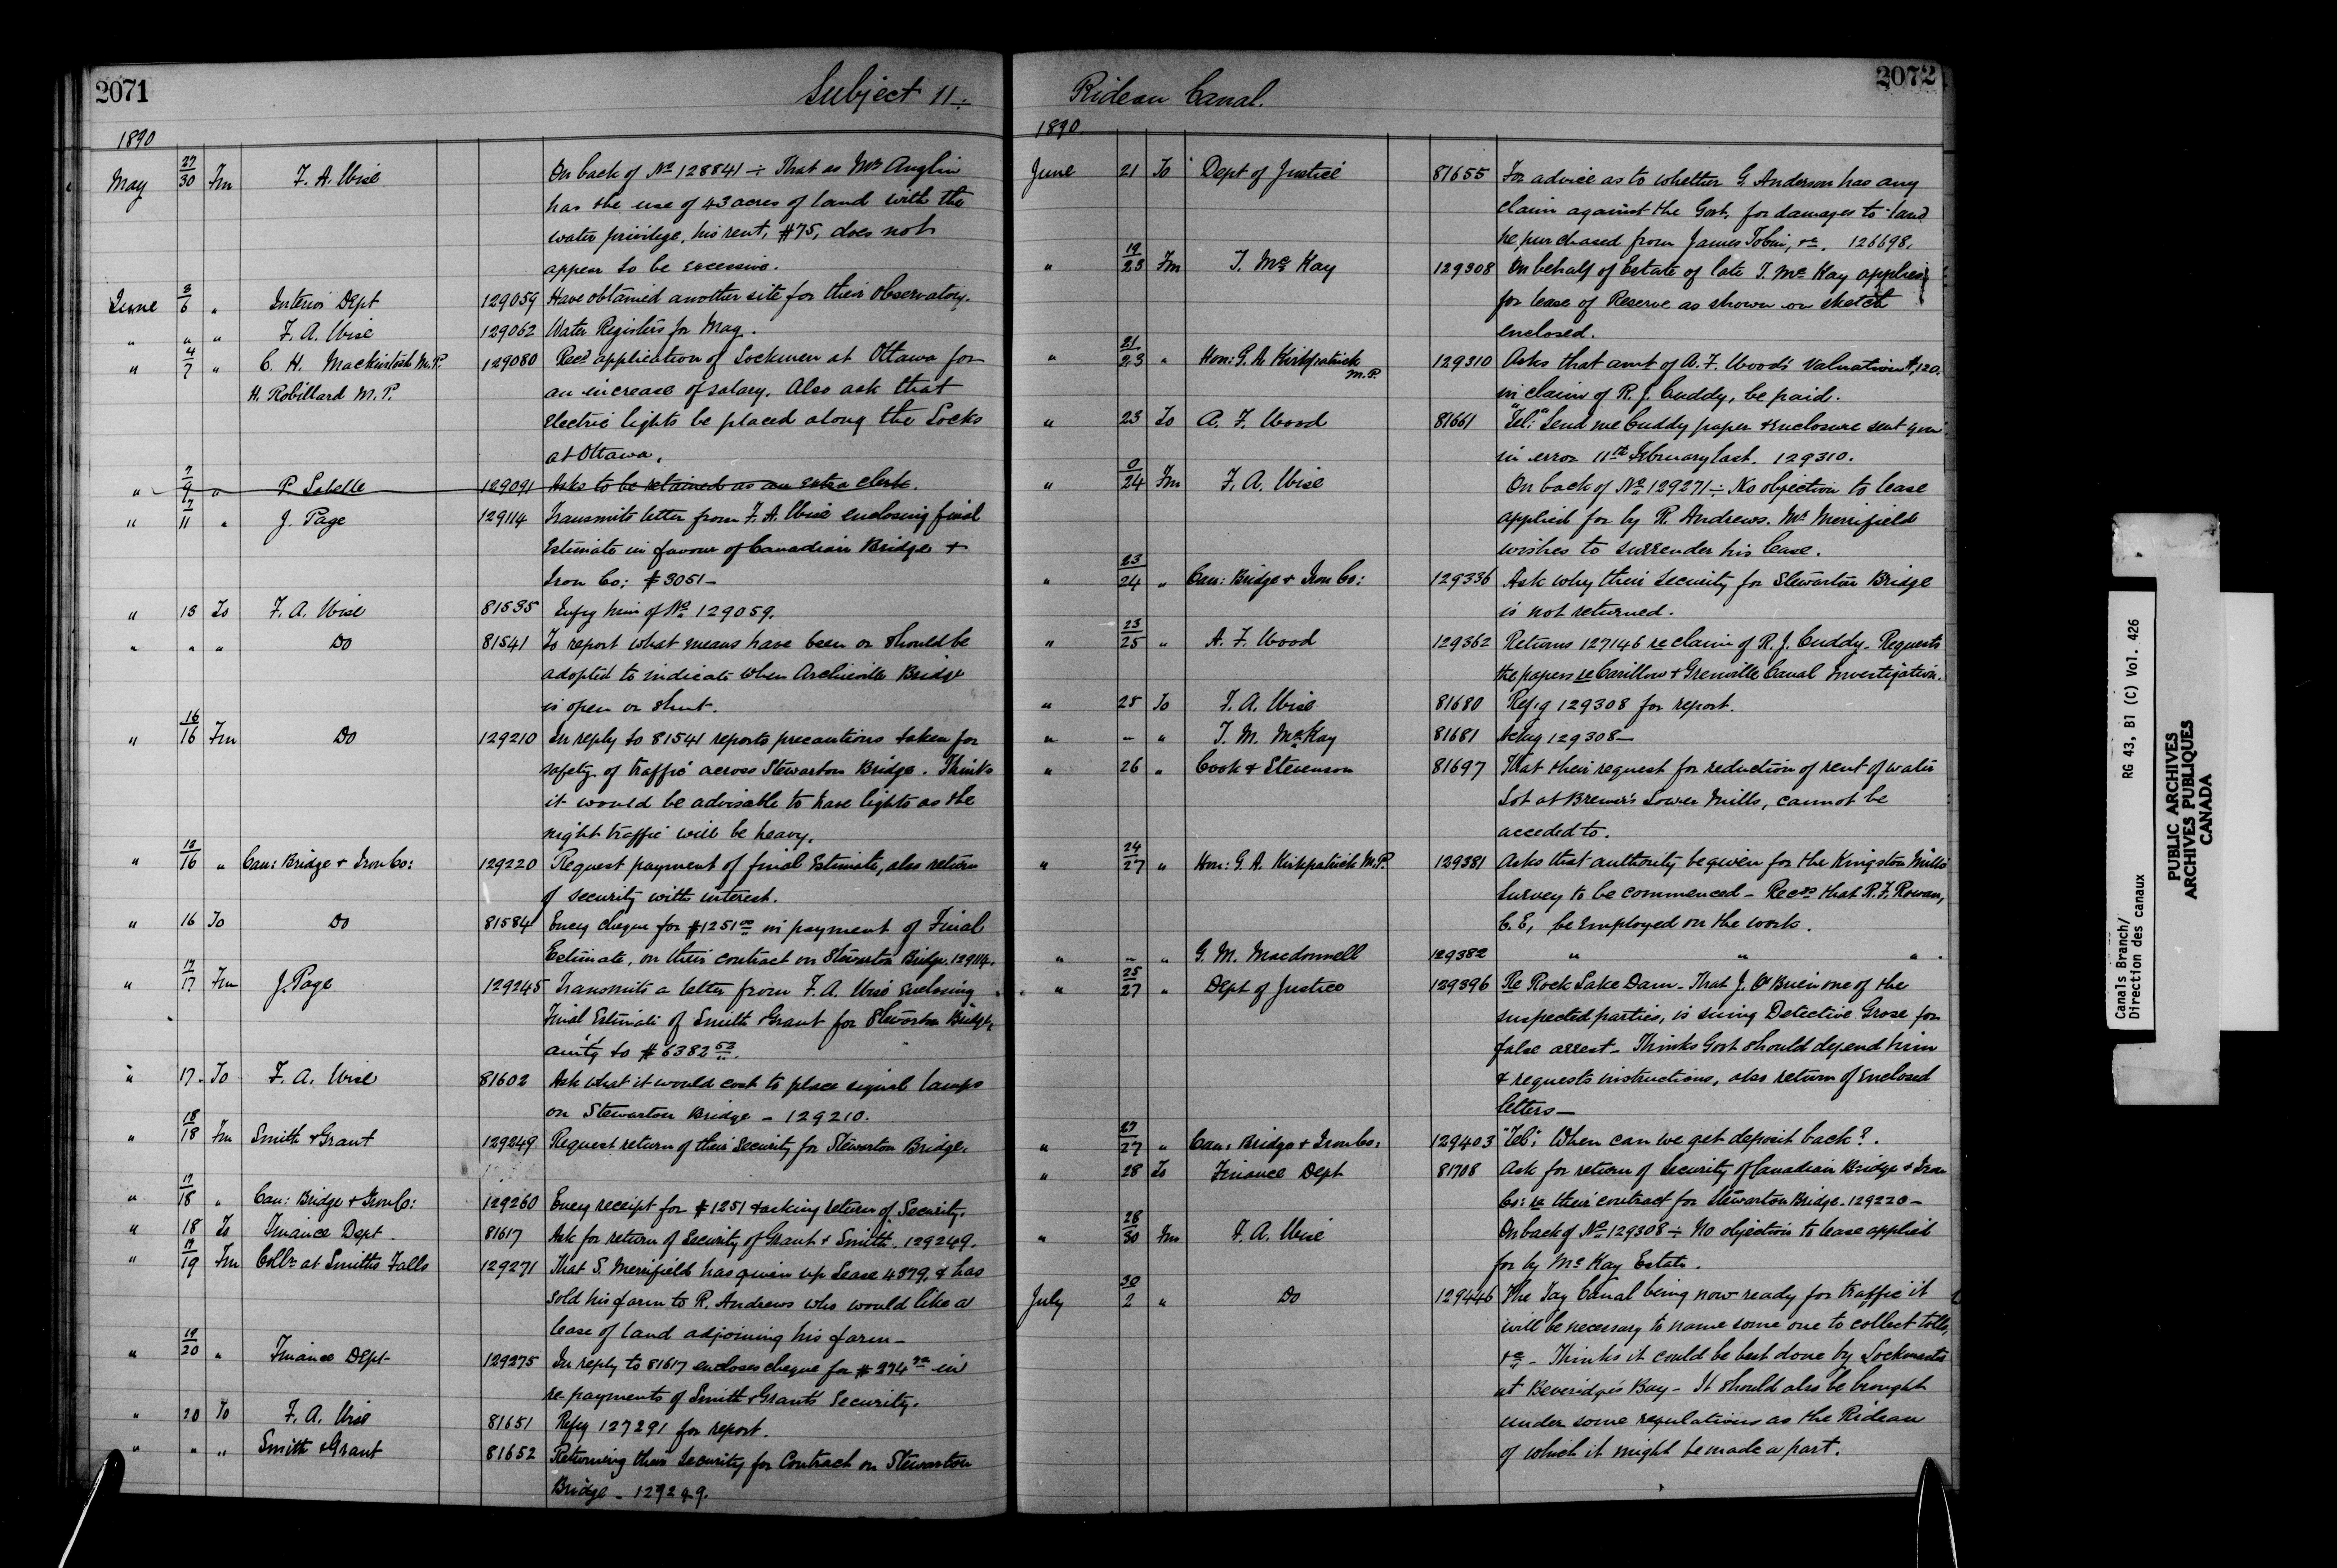 2071
Subject 11 ÷
1890
May 27/30 Fm F. A. Wise On back of No 128841 ÷ That as Mr Anglin
has the use of 43 acres of land with the
water privilege, his rent, $75, does not
appear to be excessive.
June 3/6 " Interior Dept 129059 Have obtained another site for their observatory.
" " " F. A. Wise 129062 Water Registers for May.
" 4/7 " C. H. Mackintosh M.P. 129080 Recd application of Lockmen at Ottawa for
H. Robillard M.P. an increase of salary. Also ask that
electric lights be placed along the Locks
at Ottawa.
" 7/9 " P. Labelle 129091 Asks to be retained as an extra clerk.
" 7/11 " J. Page 129114 Transmits letter from F. A. Wise enclosing final
Estimate in favour of Canadian Bridge &
Iron Co: $3051 –
" 13 To F. A. Wise 81535 Infmg him of No 129059.
" " " Do 81541 To report what means have been or should be
adopted to indicate when Archville Bridge
is open or shut.
" 16/16 Fm Do 129210 In reply to 81541 reports precautions taken for
safety of traffic across Stewarton Bridge. Thinks
it would be advisable to have lights as the
night traffic will be heavy.
" 12/16 " Can: Bridge & Iron Co: 129220 Request payment of final Estimate, also return
of security with interest.
" 16 To Do 81584 Encg cheque for $1251 00 in payment of Final
Estimate, on their contract on Stewarton Bridge. 129114.
" 17/17 Fm J. Page 129245 Transmits a letter from F. A. Wise enclosing
Final Estimate of Smith & Grant for Stewarton Bridge,
amtg to $6382 53.
" 17 To F. A. Wise 81602 Ask what it would cost to place signal lamps
on Stewarton Bridge – 129210.
" 18/18 Fm Smith & Grant 129249 Request return of their Security for Stewarton Bridge.
" 17/18 " Can: Bridge & Iron Co: 129260 Encg receipt for $1251 & asking return of Security.
" 18 To Finance Dept 81617 Ask for return of Security of Grant & Smith. 129249.
" 19/19 Fm Collr at Smiths Falls 129271 That S. Merrifield has given up Lease 4379, & has
sold his farm to R. Andrews who would like a
lease of land adjoining his farm –
" 19/20 " Finance Dept 129275 In reply to 81617 encloses cheque for in
re-payments of Smith & Grants Security.
" 20 To F. A. Wise 81651 Refg 127291 for report.
" " " Smith & Grant 81652 Returning their Security for Contract on Stewarton
Bridge – 129249.
Rideau Canal.
2072
1890
June 21 To Dept of Justice 81655 For advice as to whether G. Anderson has any
claim against the Govt. for damages to land
he purchased from James Tobin, &c. 126698.
" 19/23 Fm T. McKay 129308 On behalf of Estate of late T. McKay applies
for lease of Reserve as shown on sketch
enclosed.
" 21/23 " Hon: G. A. Kirkpatrick M.P. 129310 Asks that amt of A. F. Wood's valuation $120.
in claim of R. J. Cuddy, be paid.
" 23 To A. F. Wood 81661 "Tel:" Send me Cuddy paper & enclosure sent you
in error 11th February last. 129310.
" 0/24 Fm F. A. Wise On back of No 129271 ÷ No objection to lease
applied for by R. Andrews. Mr Merrifield
wishes to surrender his lease.
" 23/24 " Can: Bridge & Iron Co: 129336 Ask why their security for Stewarton Bridge
is not returned.
" 25/25 " A. F. Wood 129362 Returns 127146 re claim of R. J. Cuddy. Requests
the papers re Carillon & Grenville Canal Investigation.
" 25 To F. A. Wise 81680 Refg 129308 for report.
" " " T. M. McKay 81681 Ackg 129308 –
" 26 " Cook & Stevenson 81697 That their request for reduction of rent of water
Lot at Brewer's Lower Mills, cannot be
acceded to.
" 24/27 " Hon: G. A. Kirkpatrick M.P. 129381 Asks that authority be given for the Kingston Mills
survey to be commenced – Recds that R. F. Rowan,
C. E, be employed on the work.
" " " G. M. Macdonnell 129382 " " "
" 25/27 " Dept of Justice 129396 Re Rock Lake Dam – That J. O'Brien one of the
suspected parties, is suing Detective Grose for
false arrest – Thinks Govt should defend him
& requests instructions, also return of enclosed
letters –
" 27/27 " Can: Bridge & Iron Co: 129403 "Tel:" When can we get deposit back?.
" 28 To Finance Dept 81708 Ask for return of Security of Canadian Bridge & Iron
Co: re their contract for Stewarton Bridge. 129220 –
" 28/30 Fm F. A. Wise On back of No 129308 ÷ No objection to lease applied
for by McKay Estate.
July 30/2 " Do 129446 The Tay Canal being now ready for traffic it
will be necessary to name some one to collect tolls,
&c – Thinks it could be best done by Lockmaster
at Beveridge's Bay – It should also be brought
under some regulations as the Rideau
of which it might be made a part.
Canals Branch/
Direction des canaux
RG 43, B1 (C) Vol. 426
PUBLIC ARCHIVES
ARCHIVES PUBLIQUES
CANADA